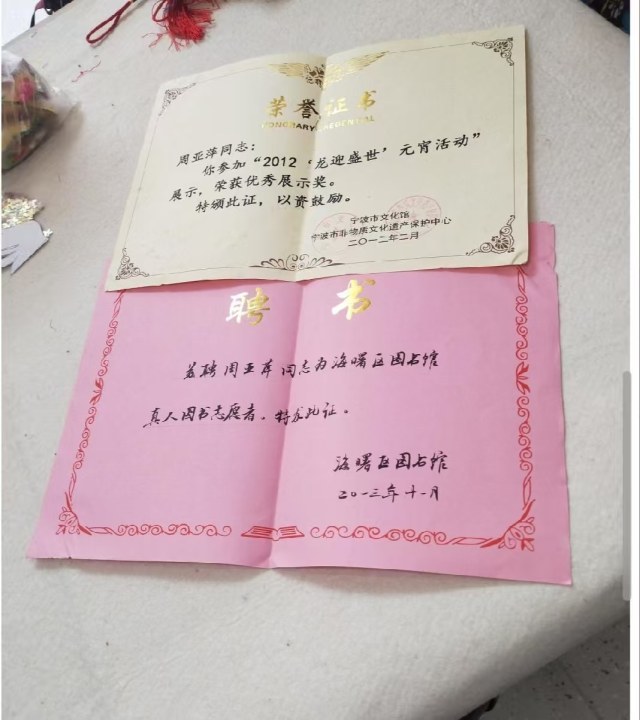 荣誉证书
HONORARY CREDENTIAL
周亚萍同志：
你参加“2012‘龙迎盛世’元宵活动”
展示，荣获优秀展示奖。
特颁此证，以资鼓励。
宁波市文化馆
宁波市非物质文化遗产保护中心
二〇一二年二月
聘书
兹聘周亚萍同志为海曙区图书馆
真人图书志愿者。特发此证。
海曙区图书馆
二〇一三年十一月